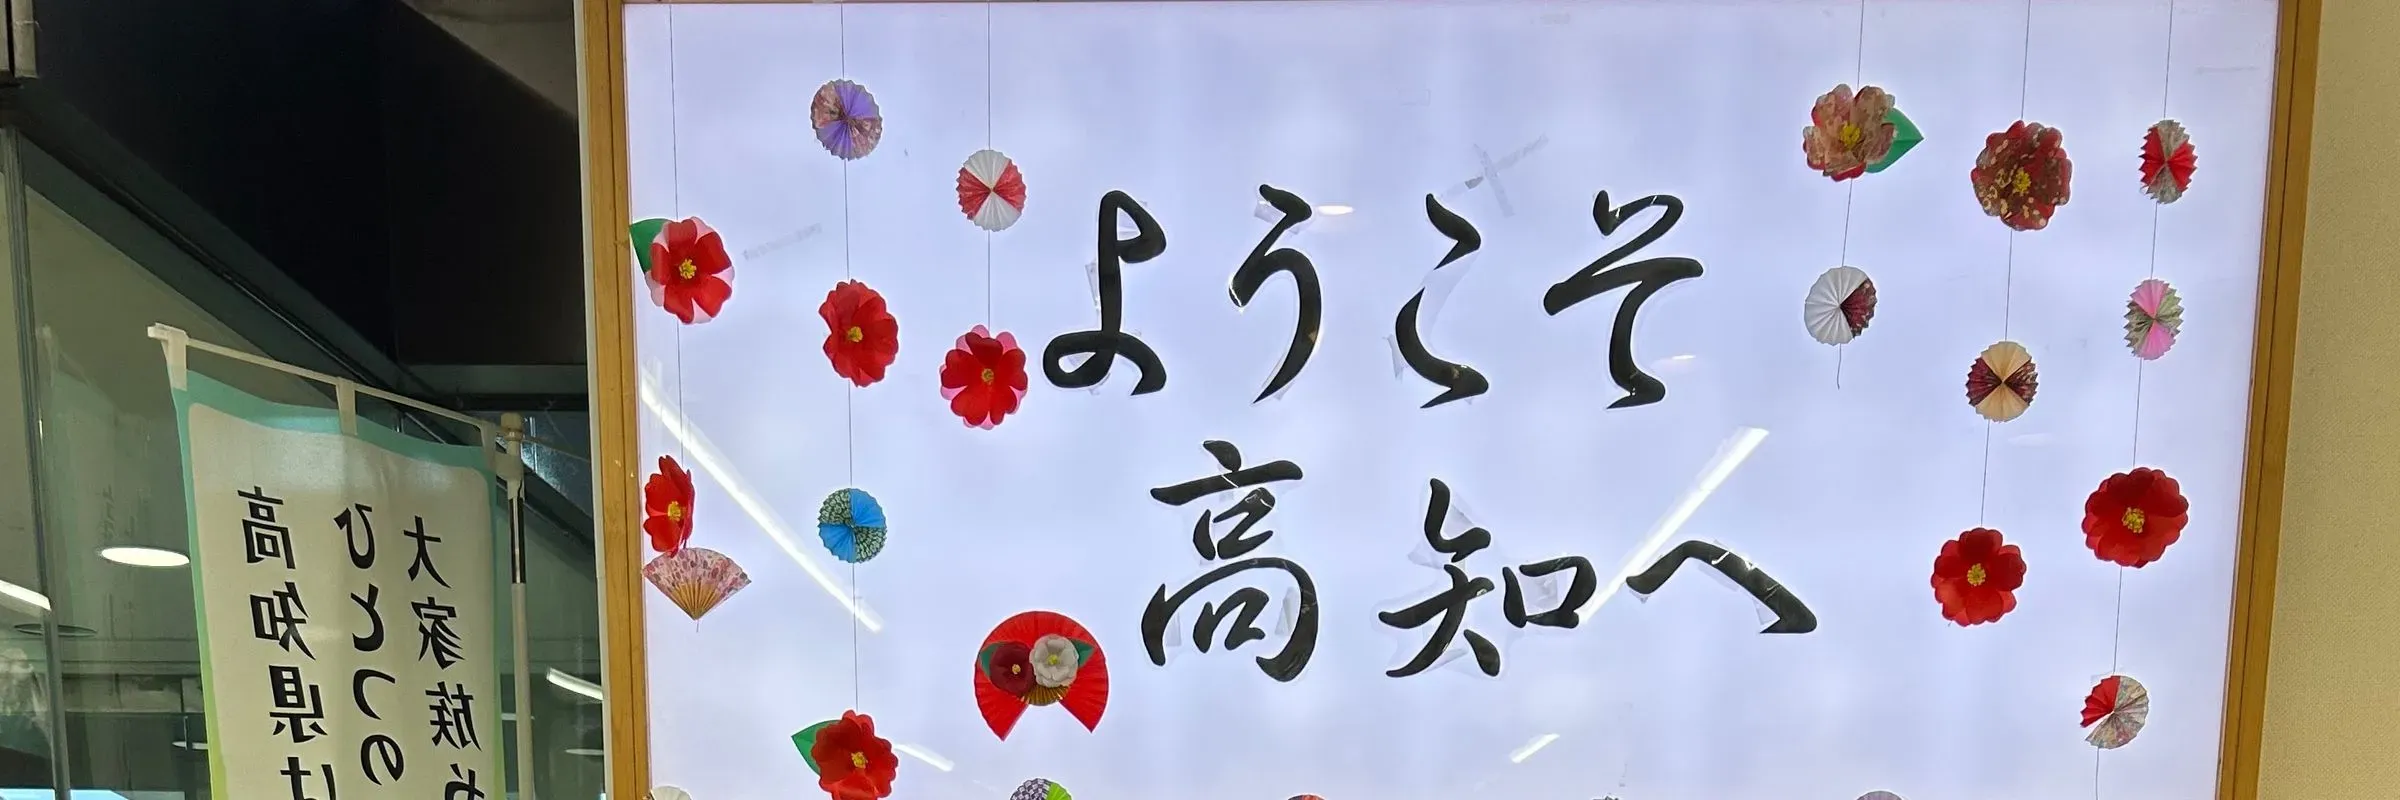 ようこそ
高知へ
高知県は
ひとつの
大家族や